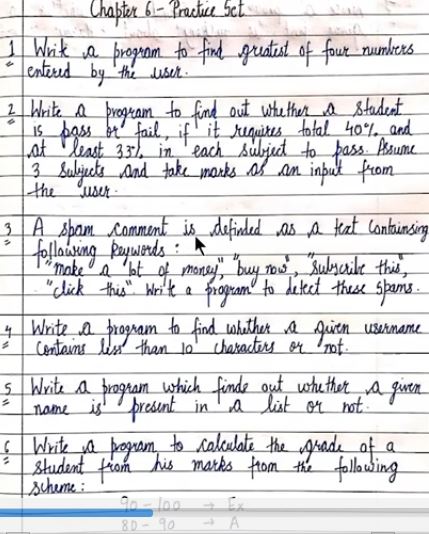 Chapter 6:- Practice Set
1 Write a program to find greatest of four numbers
entered by the user.
2 Write a program to find out whether a student
is pass or fail, if it requires total 40% and
at least 33% in each subject to pass. Assume
3 subjects and take marks as an input from
the user.
3 A spam comment is definded as a text containsing
following keywords :
"make a lot of money", "buy now", "subscribe this",
"click this". Write a program to detect these spams.
4 Write a program to find whether a given username
contains less than 10 characters or not.
5 Write a program which finds out whether a given
name is present in a list or not.
6 Write a program to calculate the grade of a
student from his marks from the following
scheme :
90 - 100 → Ex
80 - 90 → A